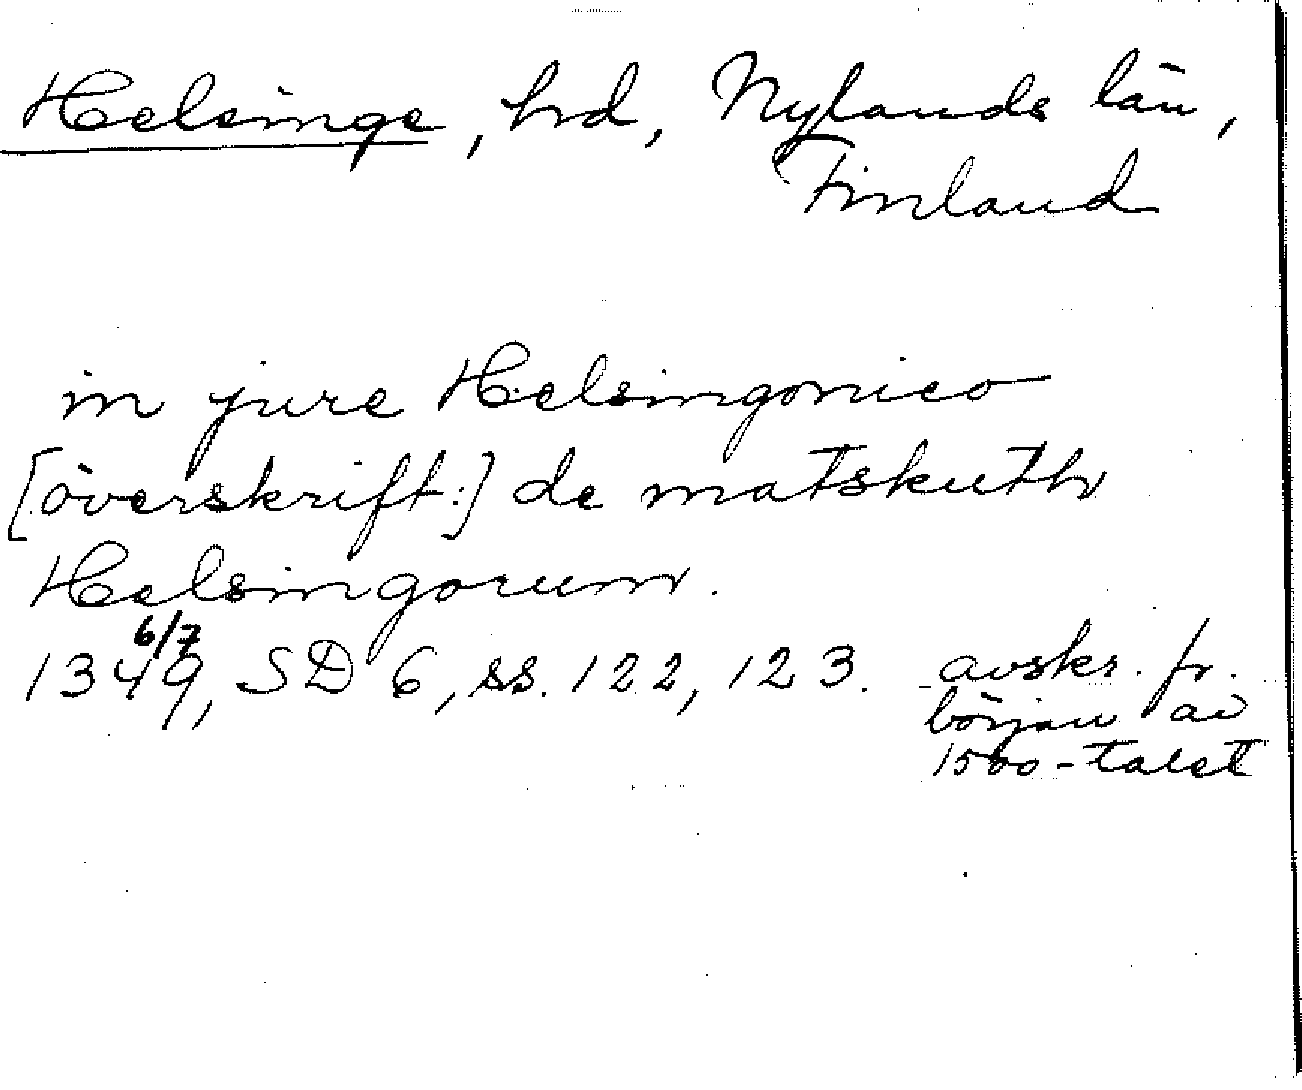 Helsinge, hd, Nylands län,
Finland
in jure Helsingonico
[överskrift:] de matskuth
Helsingorum.
6/7
1349, SD 6, ss. 122, 123. avskr. fr.
början av
1500-talet